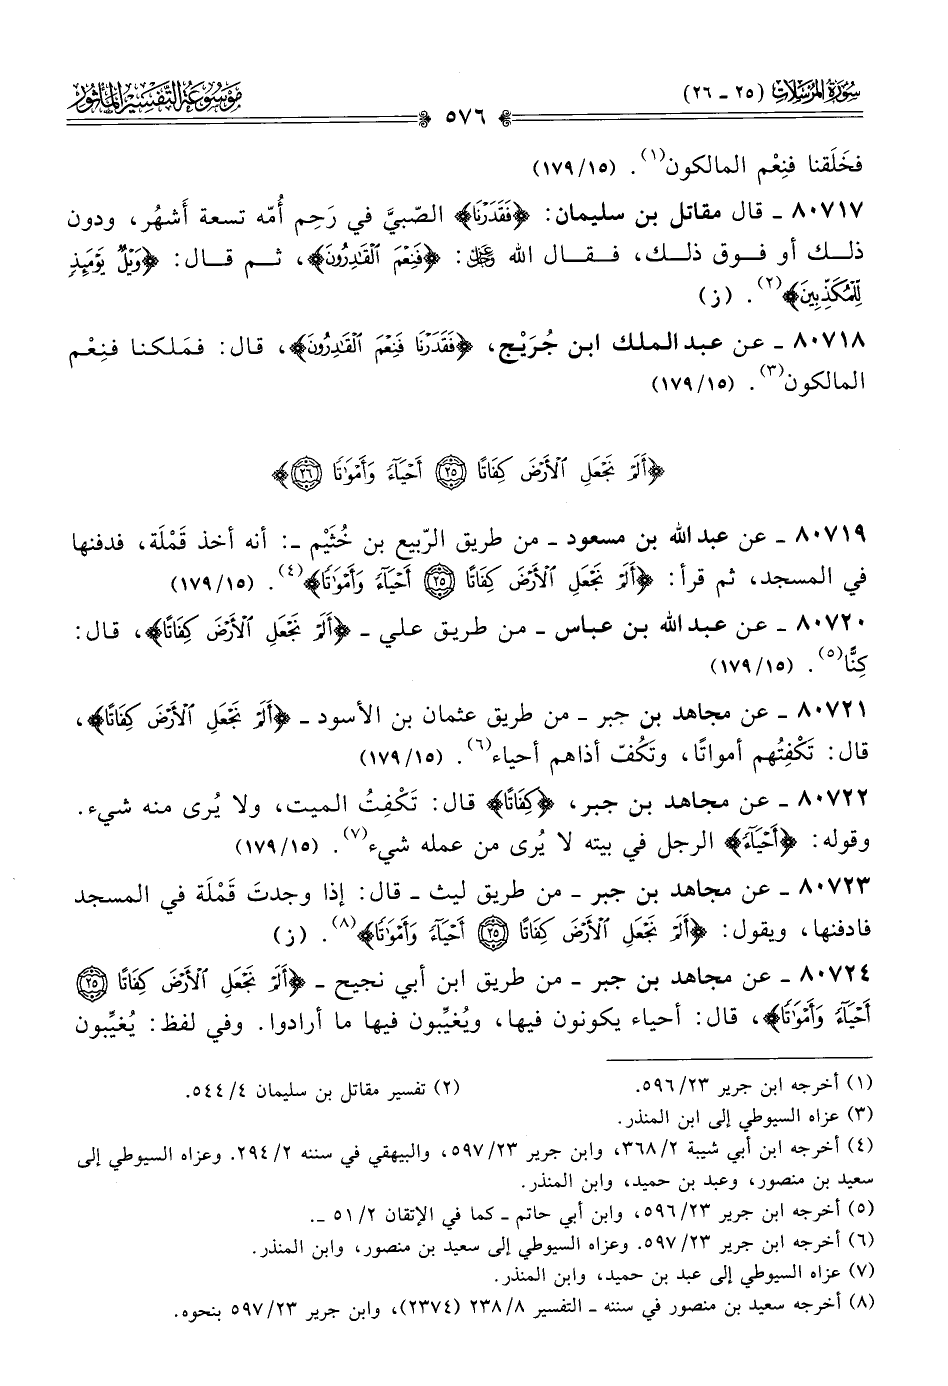 سُورَةُ المُرْسَلَات (٢٥ - ٢٦)
مَوْسُوعَةُ التَّفْسِيرِ المَأْثُور
٥٧٦
فخَلَقنا فنِعْم المالكون(١). (١٧٩/١٥)
٨٠٧١٧ - قال مقاتل بن سليمان: ﴿فَقَدَرْنَا﴾ الصّبيَّ في رَحِم أُمّه تسعة أَشهُر، ودون
ذلك أو فوق ذلك، فقال الله ﷻ: ﴿فَنِعْمَ ٱلْقَٰدِرُونَ﴾، ثم قال: ﴿وَيْلٌ يَوْمَئِذٍ
لِّلْمُكَذِّبِينَ﴾(٢). (ز)
٨٠٧١٨ - عن عبد الملك ابن جُرَيْج، ﴿فَقَدَرْنَا فَنِعْمَ ٱلْقَٰدِرُونَ﴾، قال: فمَلكنا فنِعْم
المالكون(٣). (١٧٩/١٥)
﴿أَلَمْ نَجْعَلِ ٱلْأَرْضَ كِفَاتًا ٢٥ أَحْيَآءً وَأَمْوَٰتًا ٢٦﴾
٨٠٧١٩ - عن عبد الله بن مسعود - من طريق الرّبيع بن خُثَيْم -: أنه أخذ قَمْلَة، فدفنها
في المسجد، ثم قرأ: ﴿أَلَمْ نَجْعَلِ ٱلْأَرْضَ كِفَاتًا ٢٥ أَحْيَآءً وَأَمْوَٰتًا﴾(٤). (١٧٩/١٥)
٨٠٧٢٠ - عن عبد الله بن عباس - من طريق علي - ﴿أَلَمْ نَجْعَلِ ٱلْأَرْضَ كِفَاتًا﴾، قال:
كِنًّا(٥). (١٧٩/١٥)
٨٠٧٢١ - عن مجاهد بن جبر - من طريق عثمان بن الأسود - ﴿أَلَمْ نَجْعَلِ ٱلْأَرْضَ كِفَاتًا﴾،
قال: تَكْفِتُهم أمواتًا، وتَكُفّ أذاهم أحياء(٦). (١٧٩/١٥)
٨٠٧٢٢ - عن مجاهد بن جبر، ﴿كِفَاتًا﴾ قال: تَكْفِتُ الميت، ولا يُرى منه شيء.
وقوله: ﴿أَحْيَآءً﴾ الرجل في بيته لا يُرى من عمله شيء(٧). (١٧٩/١٥)
٨٠٧٢٣ - عن مجاهد بن جبر - من طريق ليث - قال: إذا وجدتَ قَمْلَة في المسجد
فادفنها، ويقول: ﴿أَلَمْ نَجْعَلِ ٱلْأَرْضَ كِفَاتًا ٢٥ أَحْيَآءً وَأَمْوَٰتًا﴾(٨). (ز)
٨٠٧٢٤ - عن مجاهد بن جبر - من طريق ابن أبي نجيح - ﴿أَلَمْ نَجْعَلِ ٱلْأَرْضَ كِفَاتًا ٢٥
أَحْيَآءً وَأَمْوَٰتًا﴾، قال: أحياء يكونون فيها، ويُغيِّبون فيها ما أرادوا. وفي لفظ: يُغيِّبون
(١) أخرجه ابن جرير ٢٣/ ٥٩٦. (٢) تفسير مقاتل بن سليمان ٤/ ٥٤٤.
(٣) عزاه السيوطي إلى ابن المنذر.
(٤) أخرجه ابن أبي شيبة ٢/ ٣٦٨، وابن جرير ٢٣/ ٥٩٧، والبيهقي في سننه ٢/ ٢٩٤. وعزاه السيوطي إلى
سعيد بن منصور، وعبد بن حميد، وابن المنذر.
(٥) أخرجه ابن جرير ٢٣/ ٥٩٦، وابن أبي حاتم - كما في الإتقان ٢/ ٥١ -.
(٦) أخرجه ابن جرير ٢٣/ ٥٩٧. وعزاه السيوطي إلى سعيد بن منصور، وابن المنذر.
(٧) عزاه السيوطي إلى عبد بن حميد، وابن المنذر.
(٨) أخرجه سعيد بن منصور في سننه - التفسير ٨/ ٢٣٨ (٢٣٧٤)، وابن جرير ٢٣/ ٥٩٧ بنحوه.